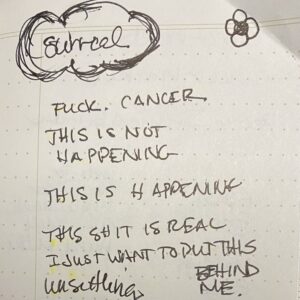 surreal
FUCK. CANCER.
THIS IS NOT
HAPPENING
THIS IS HAPPENING
THIS SHIT IS REAL
I JUST WANT TO PUT THIS
BEHIND
unsettling
ME.